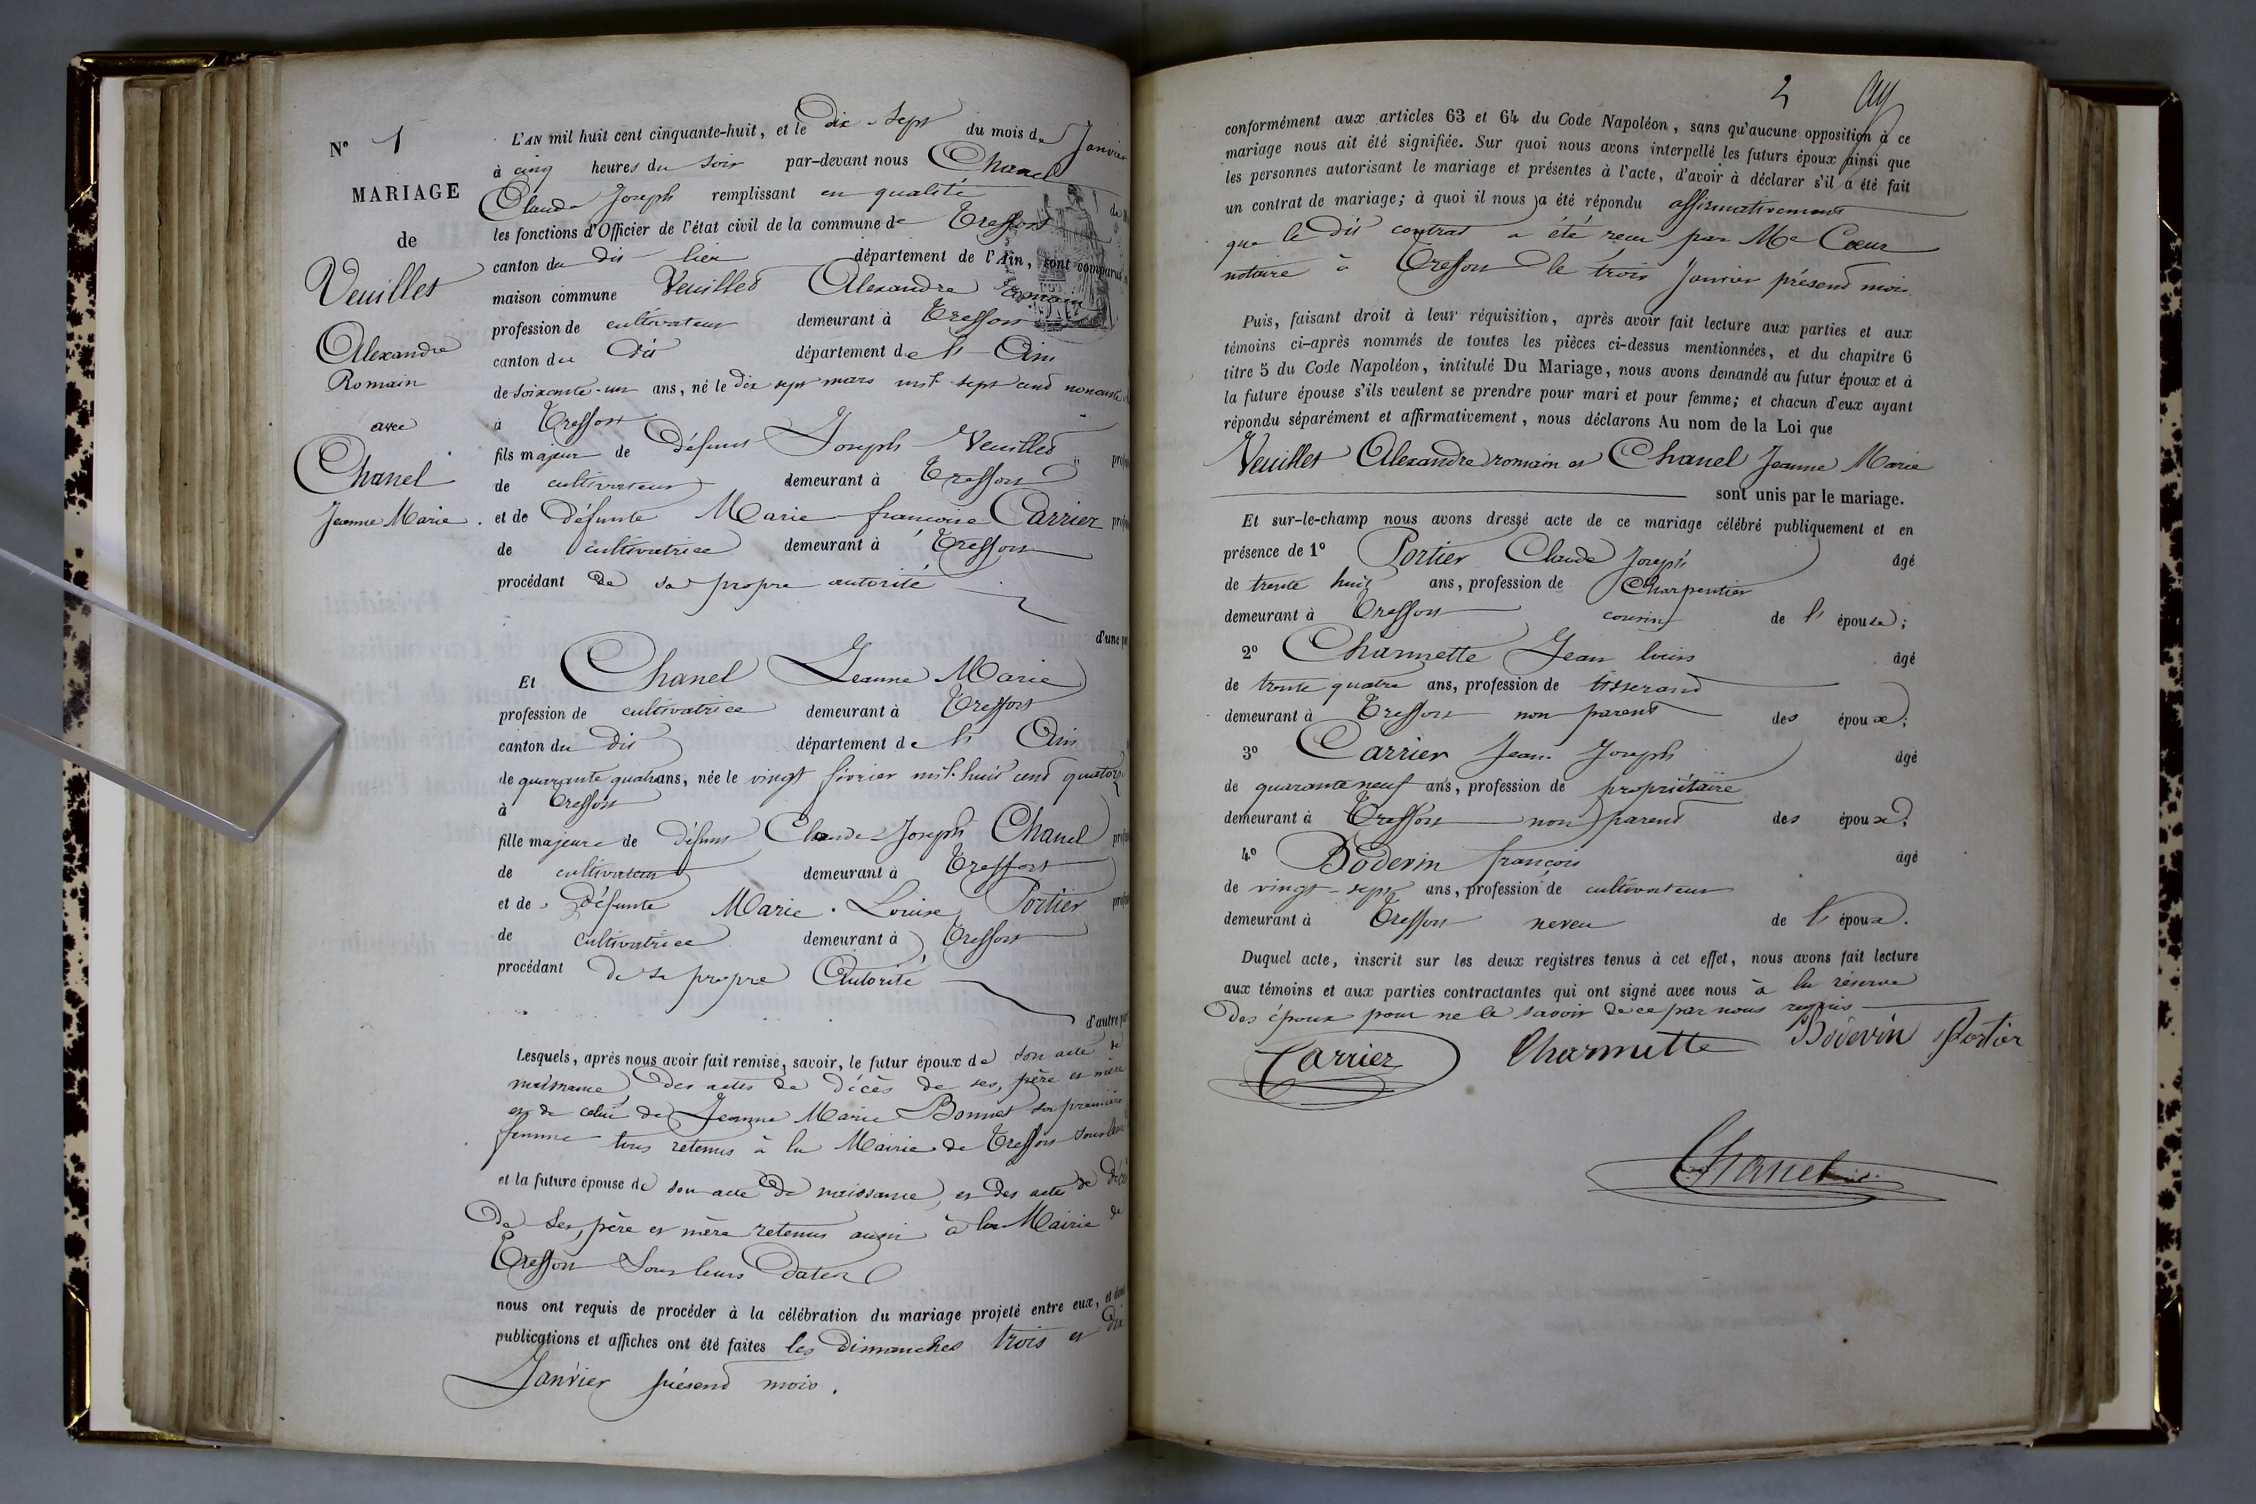 N° 1
MARIAGE
de
Veuillet
Alexandre
Romain
avec
Chanel
Jeanne Marie.
L'AN mil huit cent cinquante-huit, et le dix-sept du mois de Janvier
à cinq heures du soir par-devant nous Chanel
Claude Joseph remplissant en qualité de
les fonctions d'Officier de l'état civil de la commune de Treffort
canton du dit lieu département de l'Ain, sont comparus
maison commune Veuillet Alexandre romain
profession de cultivateur demeurant à Treffort
canton du dit département de l' Ain
de soixante-un ans, né le dix sept mars mil sept cent nonante
à Treffort
fils majeur de défunt Joseph Veuillet
de cultivateur demeurant à Treffort
et de défunte Marie françoise Carrier
de cultivatrice demeurant à Treffort
procédant de sa propre autorité
d'une
Et Chanel Jeanne Marie
profession de cultivatrice demeurant à Treffort
canton du dit département de l' Ain
de quarante quatre ans, née le vingt février mil huit cent quatorze
à Treffort
fille majeure de défunt Claude Joseph Chanel
de cultivateur demeurant à Treffort
et de défunte Marie Louise Portier
de cultivatrice demeurant à Treffort
procédant de sa propre Autorité
d'autre
Lesquels, après nous avoir fait remise, savoir, le futur époux de son acte de
naissance, des actes de décès de ses père et mère
et de celui de Jeanne Marie Bonnet sa première
femme tous retenus à la Mairie de Treffort sous leur
et la future épouse de son acte de naissance, et des actes de décès
de ses père et mère retenus aussi à la Mairie de
Treffort sous leurs dates
nous ont requis de procéder à la célébration du mariage projeté entre eux, et dont
publications et affiches ont été faites les dimanches trois et dix
Janvier présent mois.
2
conformément aux articles 63 et 64 du Code Napoléon, sans qu'aucune opposition à ce
mariage nous ait été signifiée. Sur quoi nous avons interpellé les futurs époux ainsi que
les personnes autorisant le mariage et présentes à l'acte, d'avoir à déclarer s'il a été fait
un contrat de mariage; à quoi il nous a été répondu affirmativement
que le dit contrat a été reçu par Me Cœur
notaire à Treffort le trois Janvier présent mois.
Puis, faisant droit à leur réquisition, après avoir fait lecture aux parties et aux
témoins ci-après nommés de toutes les pièces ci-dessus mentionnées, et du chapitre 6
titre 5 du Code Napoléon, intitulé Du Mariage, nous avons demandé au futur époux et à
la future épouse s'ils veulent se prendre pour mari et pour femme; et chacun d'eux ayant
répondu séparément et affirmativement, nous déclarons Au nom de la Loi que
Veuillet Alexandre romain et Chanel Jeanne Marie
sont unis par le mariage.
Et sur-le-champ nous avons dressé acte de ce mariage célébré publiquement et en
présence de 1° Portier Claude Joseph âgé
de trente huit ans, profession de Charpentier
demeurant à Treffort cousin de l' épouse;
2° Charmette Jean louis âgé
de trente quatre ans, profession de tisserand
demeurant à Treffort non parent des époux;
3° Carrier Jean Joseph âgé
de quarante neuf ans, profession de propriétaire
demeurant à Treffort non parent des époux;
4° Bodevin françois âgé
de vingt-sept ans, profession de cultivateur
demeurant à Treffort neveu de l' époux.
Duquel acte, inscrit sur les deux registres tenus à cet effet, nous avons fait lecture
aux témoins et aux parties contractantes qui ont signé avec nous à la réserve
des époux pour ne le savoir de ce par nous requis
Carrier Charmette Bodevin Portier
Chanel